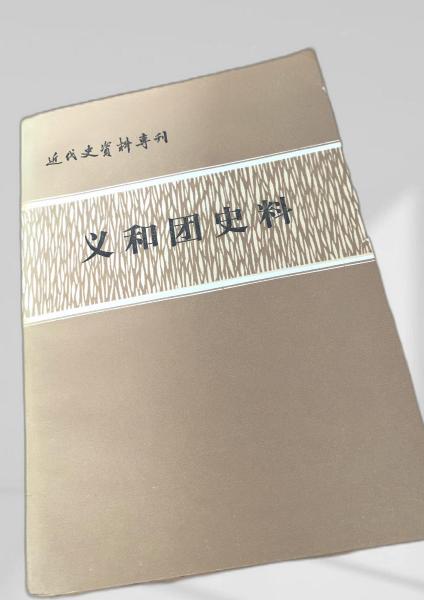 近代史资料专刊
义和团史料